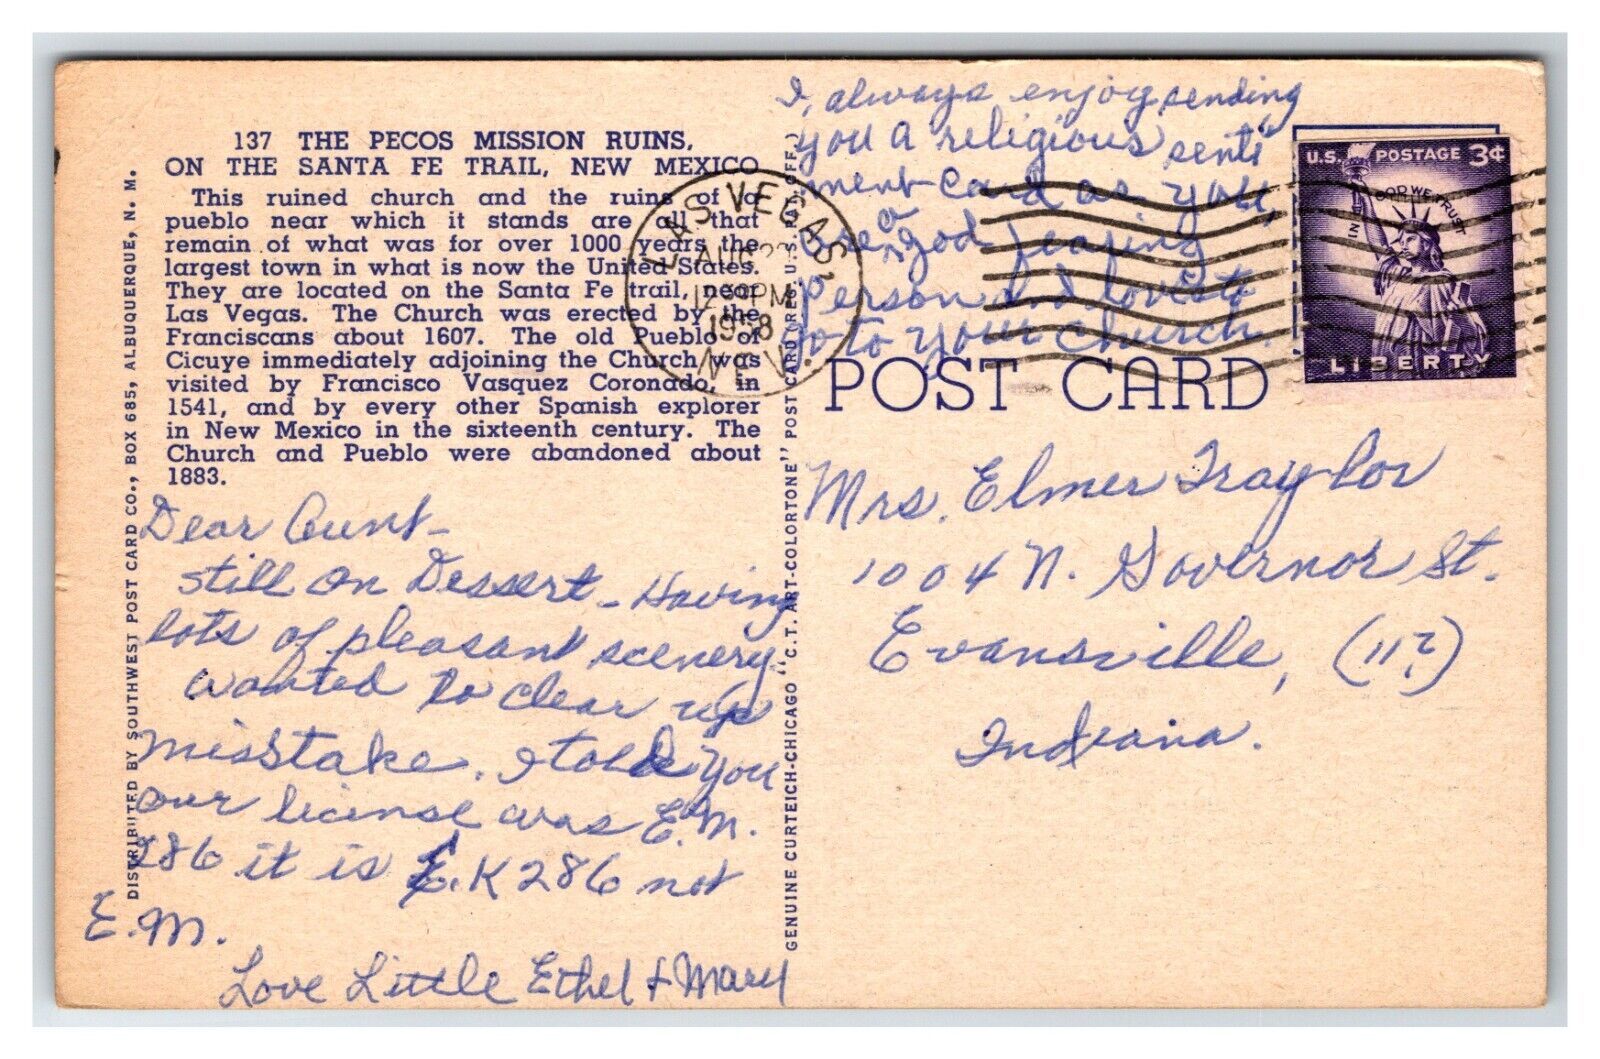 137 THE PECOS MISSION RUINS,
ON THE SANTA FE TRAIL, NEW MEXICO
This ruined church and the ruins of a
pueblo near which it stands are all that
remain of what was for over 1000 years the
largest town in what is now the United States.
They are located on the Santa Fe trail, near
Las Vegas. The Church was erected by the
Franciscans about 1607. The old Pueblo of
Cicuye immediately adjoining the Church, was
visited by Francisco Vasquez Coronado, in
1541, and by every other Spanish explorer
in New Mexico in the sixteenth century. The
Church and Pueblo were abandoned about
1883.
Dear Aunt -
still on Dessert - Having
lots of pleasant scenery
wanted to clear up
misstake. I told you
our license was E.M.
286 it is E.K 286 not
E.M.
Love Little Ethel & Mary
DISTRIBUTED BY SOUTHWEST POST CARD CO., BOX 685, ALBUQUERQUE, N. M.
GENUINE CURTEICH-CHICAGO "C.T. ART-COLORTONE" POST CARD (REG. U.S. PAT. OFF.)
LAS VEGAS,
AUG
PM
1958
NEV.
I, always enjoy sending
you a religious senti
ment card as you,
are a god fearing
person and loves to
go to your church.
U.S. POSTAGE 3¢
IN GOD WE TRUST
LIBERTY
POST CARD
Mrs. Elmer Traylor
1004 N. Governor St.
Evansville, (11?)
Indiana.